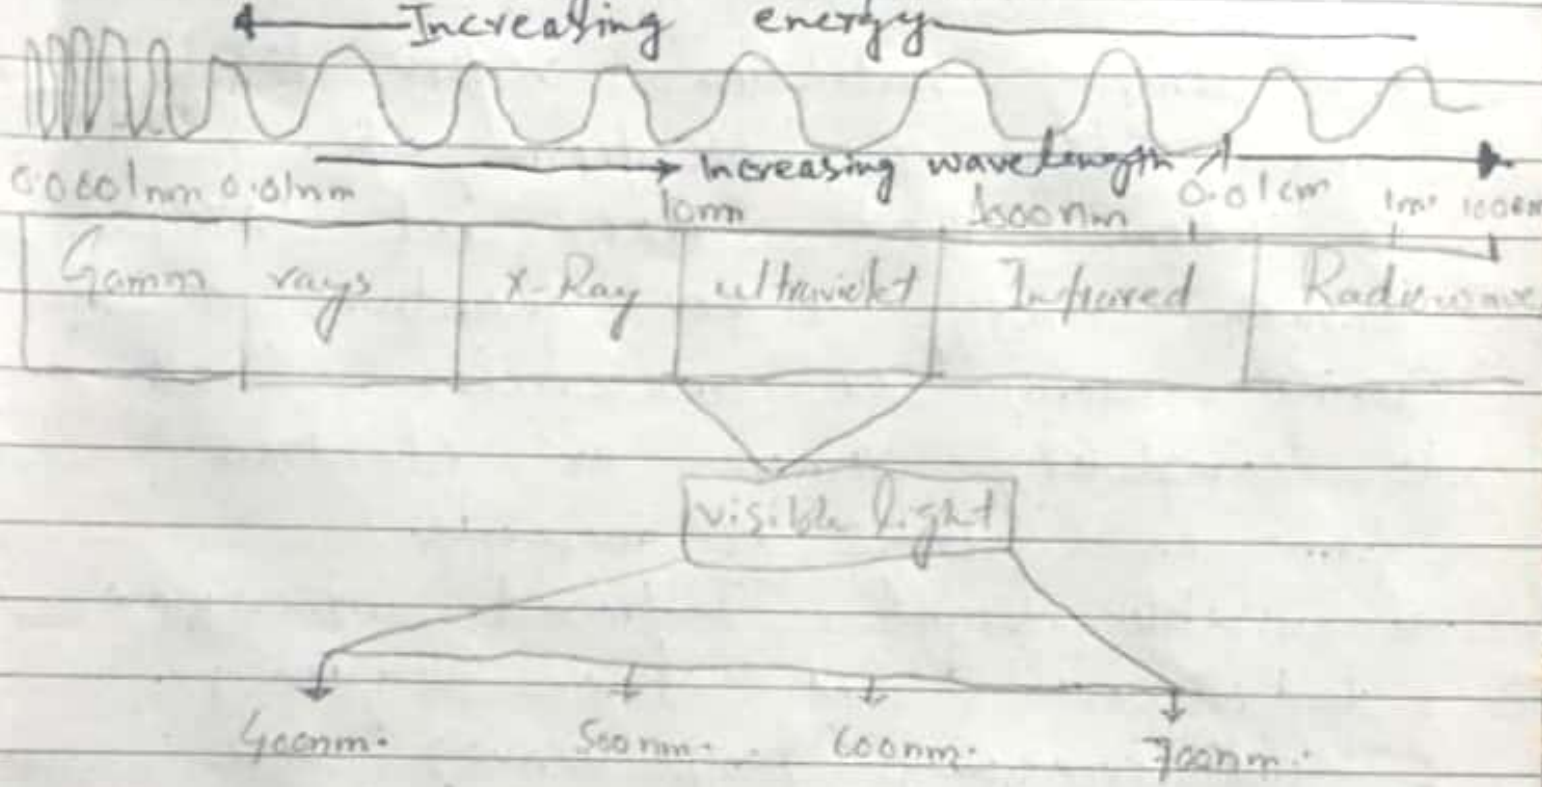 Increasing energy
Increasing wavelength
0.0001nm 0.01nm 10nm 1000nm 0.01cm 1m 100m
Gamm rays X-Ray ultraviolet Infrared Radiowave
visible light
400nm. 500nm. 600nm. 700nm.